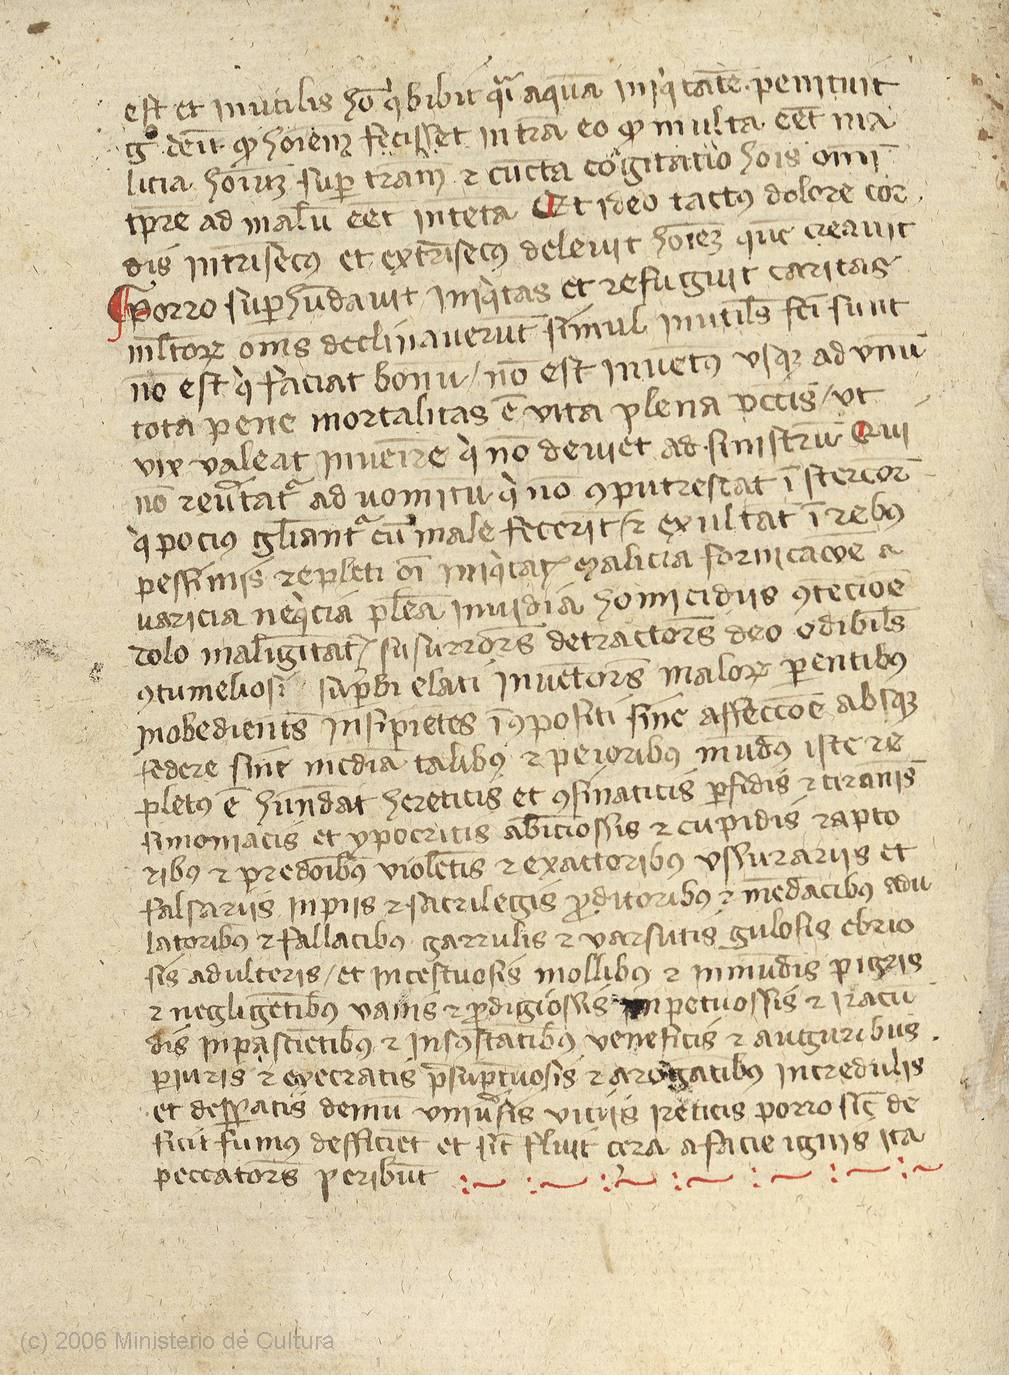 est et inutilis hō qͥ bibit qͣi aquā iniqͥtatē. penituit
gͦ deū ꝙ hoīem fecisset in trā eo ꝙ multa eēt ma
licia hoīuꝫ suꝑ tram̄ ⁊ cūcta cogitatio hoīs omī
tp̄re ad malū eēt intēta Et ideo tactꝰ dolore cor
dis intrīsecꝰ et extrīsecꝰ delevit hoīeꝫ quē creavit
Porro suꝑhūdavit iniqͥtas et refugiit caritas
ml̄toꝝ om̄s declinaverūt simul inutil̄s fc̄i sunt
nō est qͥ faciat bonū / nō est invētꝰ usqꝫ ad unū
tota pene mortalitas ē vita plena pc̄cis / ut
vix valeat invenire qͥ nō deviet ad sinistrū Qui
nō rev̄tatᷣ ad vomitū qͥ nō ꝯputrescat ī stercor̄
qͥ pocius gl̄iantᷣ cū male fecerīt / ⁊ exultāt ī rebꝰ
pessimis repleti oī iniqͥtatꝭ malicia fornicacōe a
varicia neqͥcia pl̄ea invidia homicidiis ꝯtēcioē
dolo malignitatꝭ / susurrōes detractor̄s deo odibil̄s
ꝯtumeliosi suꝑbi elati inventor̄s maloꝝ parentibꝰ
inobedient̄s insipiētes īꝯpositi sine affeccōe absqꝫ
federe sine mc̄dia talibꝰ ⁊ peioribꝰ mūdꝰ iste re
pletꝰ ē hūndat hereticis et ꝯsmaticis ꝑfidis ⁊ tirānis
simoniacis et ypocritis ābiciossis ⁊ cupidis rapto
ribꝰ ⁊ predoībꝰ violētis ⁊ exactoribꝰ ussurariis et
falsariis inpiis ⁊ sacrilegis ꝓditoribꝰ ⁊ mēdacibꝰ adu
latoribꝰ ⁊ fallacibꝰ garrulis ⁊ varsutis gulosis ebrio
sis adulteris / et incestuosis mollibꝰ ⁊ inmūdis pigris
⁊ negligētibꝰ vanis ⁊ ꝓdigiossis inpetuossis ⁊ iracū
dis inpasciētibꝰ ⁊ inꝯstātibꝰ veneficis ⁊ auguribus
ꝑiuris ⁊ execratis p̄suptuosis ⁊ arogātibꝰ incredulis
et desꝑatis demū univ̄sis viciis ireticis porro sic̄ de
ficit fumꝰ defficiēt et sic̄ fluit cera a facie ignis ita
peccator̄s peribūt
(c) 2006 Ministerio de Cultura